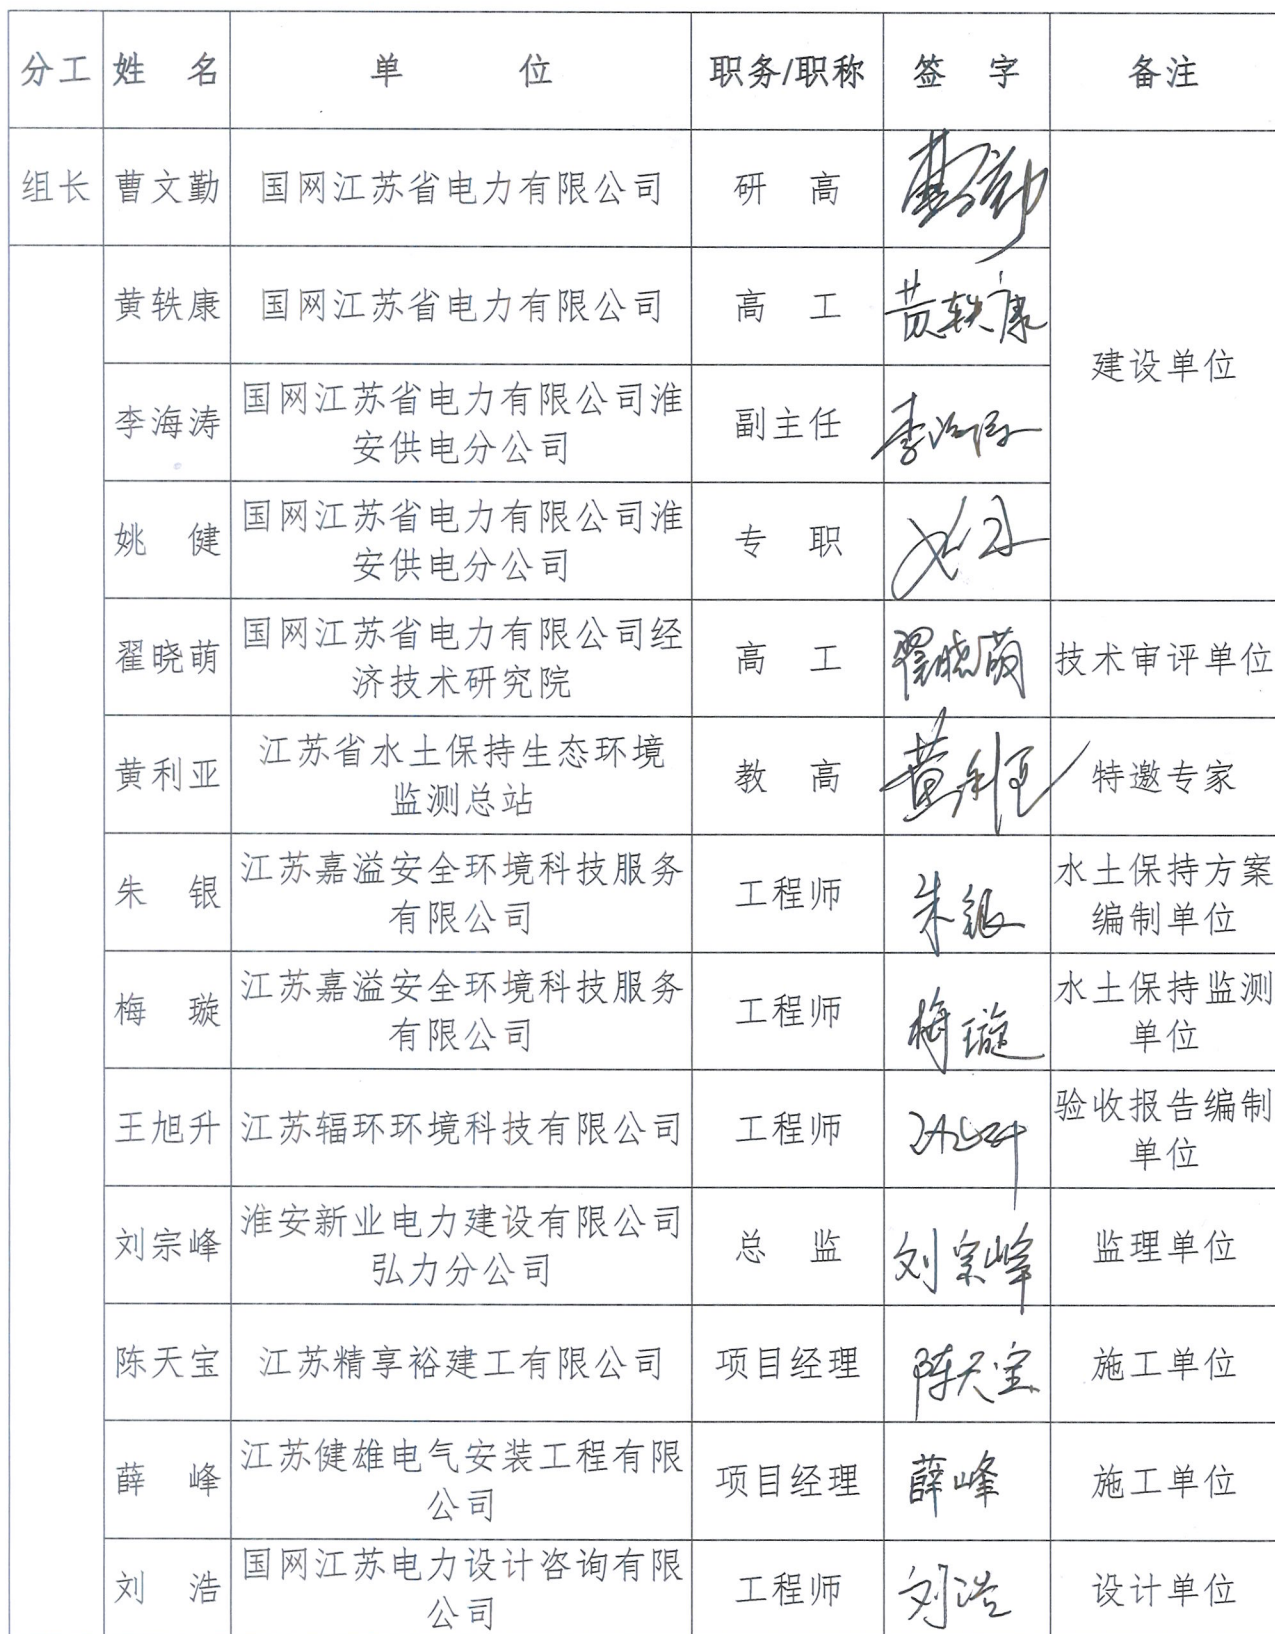 分工 姓 名 单 位 职务/职称 签 字 备注
组长 曹文勤 国网江苏省电力有限公司 研 高
黄轶康 国网江苏省电力有限公司 高 工 黄轶康
建设单位
李海涛 国网江苏省电力有限公司淮
安供电分公司 副主任 李海涛
姚 健 国网江苏省电力有限公司淮
安供电分公司 专 职
翟晓萌 国网江苏省电力有限公司经
济技术研究院 高 工 翟晓萌 技术审评单位
黄利亚 江苏省水土保持生态环境
监测总站 教 高 黄利亚 特邀专家
朱 银 江苏嘉溢安全环境科技服务
有限公司 工程师 朱银 水土保持方案
编制单位
梅 璇 江苏嘉溢安全环境科技服务
有限公司 工程师 梅璇 水土保持监测
单位
王旭升 江苏辐环环境科技有限公司 工程师 验收报告编制
单位
刘宗峰 淮安新业电力建设有限公司
弘力分公司 总 监 刘宗峰 监理单位
陈天宝 江苏精享裕建工有限公司 项目经理 陈天宝 施工单位
薛 峰 江苏健雄电气安装工程有限
公司 项目经理 薛峰 施工单位
刘 浩 国网江苏电力设计咨询有限
公司 工程师 刘浩 设计单位